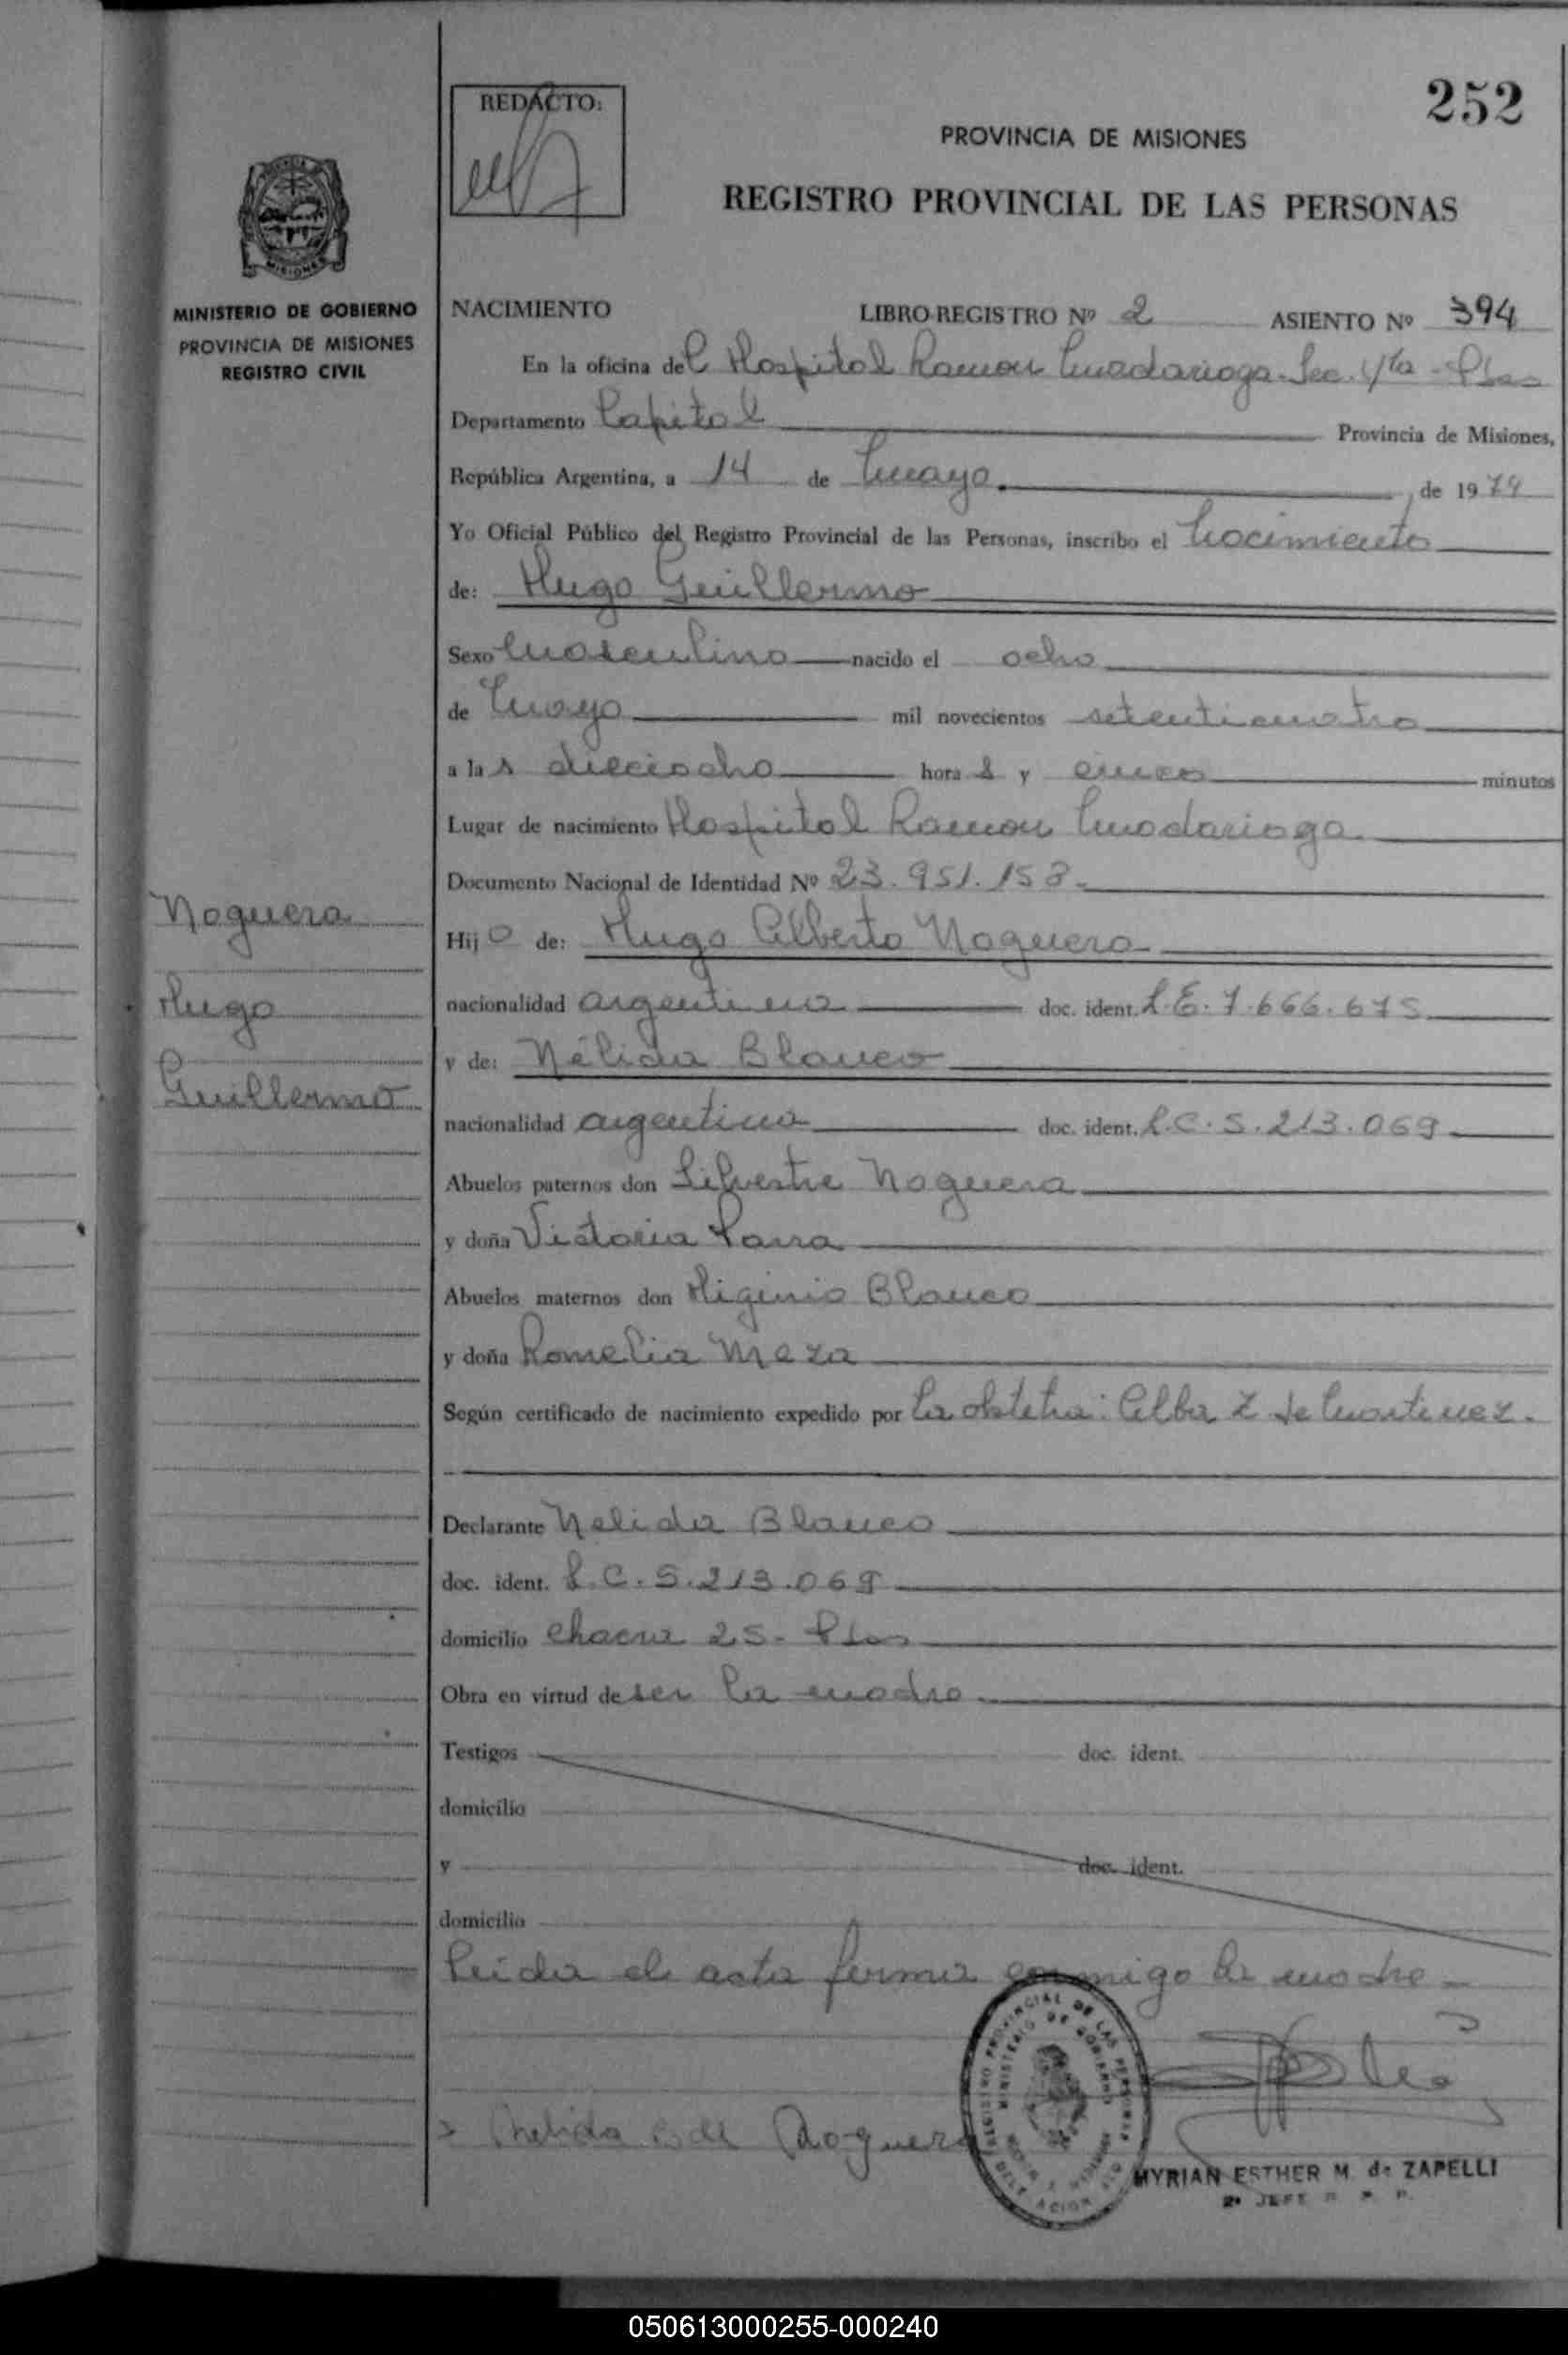 252
REDACTO:
PROVINCIA DE MISIONES
REGISTRO PROVINCIAL DE LAS PERSONAS
MISIONES
MINISTERIO DE GOBIERNO
PROVINCIA DE MISIONES
REGISTRO CIVIL
NACIMIENTO LIBRO REGISTRO Nº 2 ASIENTO Nº 394
En la oficina del Hospital Ramon Madariaga. Sec. 4ta - Pdas
Departamento Capital Provincia de Misiones,
República Argentina, a 14 de Mayo , de 1974
Yo Oficial Público del Registro Provincial de las Personas, inscribo el Nacimiento
de: Hugo Guillermo
Sexo Masculino nacido el ocho
de Mayo mil novecientos setenticuatro
a las dieciocho horas y cinco minutos
Lugar de nacimiento Hospital Ramon Madariaga
Documento Nacional de Identidad Nº 23.951.158.
Noguera
Hugo
Guillermo
Hijo de: Hugo Alberto Noguera
nacionalidad argentina doc. ident. L.E. 7.666.675
y de: Nélida Blanco
nacionalidad argentina doc. ident. L.C. 5.213.069
Abuelos paternos don Silvestre Noguera
y doña Victoria Parra
Abuelos maternos don Higinio Blanco
y doña Romelia Meza
Según certificado de nacimiento expedido por La obstetra: Alba Z de Martinez.
Declarante Nelida Blanco
doc. ident. L.C. 5.213.069
domicilio Chacra 25- Pdas
Obra en virtud de ser la madre
Testigos doc. ident.
domicilio
y doc. ident.
domicilio
Leida el acta firma conmigo la madre -
Nelida B de Noguera
REGISTRO PROVINCIAL DE LAS PERSONAS
MINISTERIO DE GOBIERNO
MYRIAN ESTHER M. de ZAPELLI
2º JEFE R. P. P.
050613000255-000240